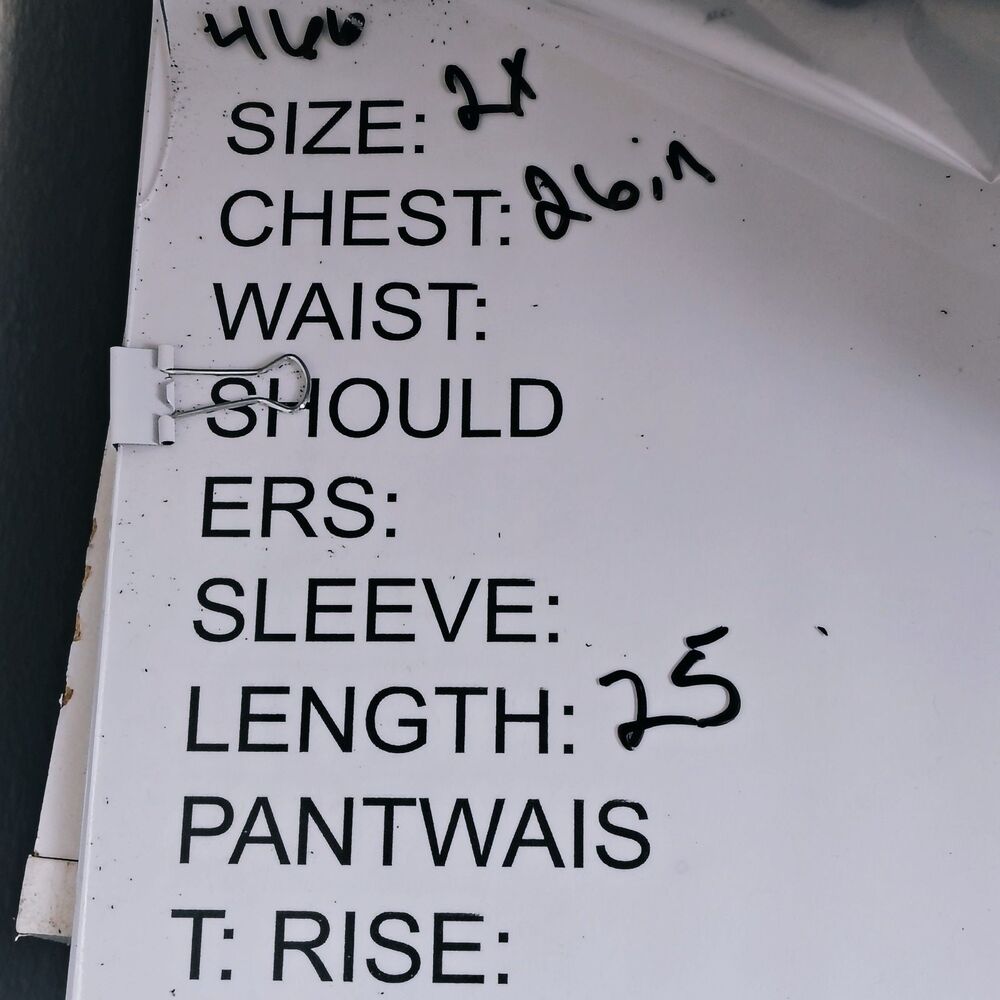 466
SIZE: 2X
CHEST: 26in
WAIST:
SHOULD
ERS:
SLEEVE:
LENGTH: 25
PANTWAIS
T: RISE: